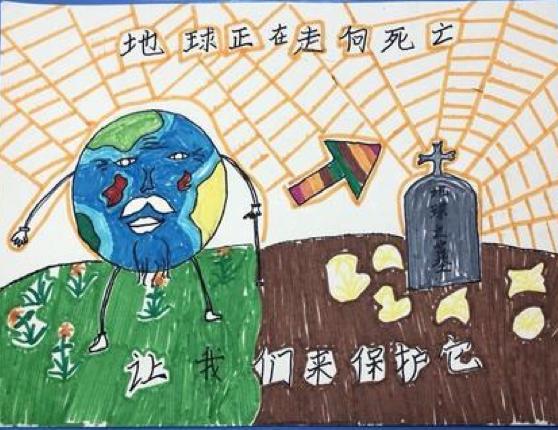 地球正在走向死亡
地球之墓
让我们来保护它